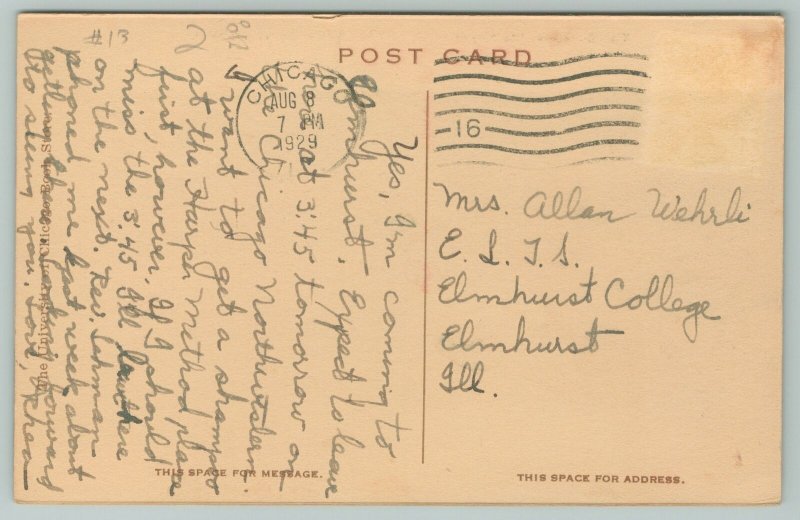 #13
POST CARD
CHICAGO
AUG 8
7 PM
1929
16
Yes, I'm coming to
Elmhurst. Expect to leave
here at 3:45 tomorrow on
the Chicago Northwestern.
I want to get a shampoo
at the Harper Method place
first, however. If I should
miss the 3:45 I'll be there
on the next. Rev.
phoned me last week about
getting
to seeing you. Love, Rhea
Mrs. Allan Wehrli
E. L. T. S.
Elmhurst College
Elmhurst
Ill.
THIS SPACE FOR MESSAGE.
THIS SPACE FOR ADDRESS.